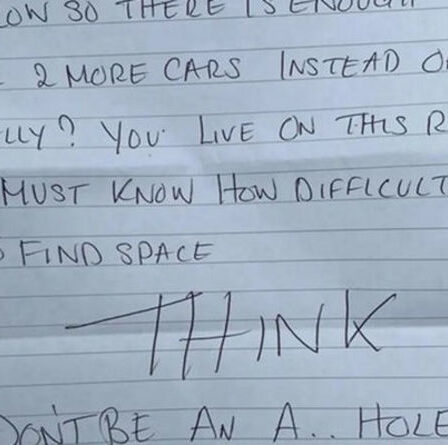 LOW SO THERE IS ENOUGH
2 MORE CARS INSTEAD O
LLY? YOU LIVE ON THIS R
MUST KNOW HOW DIFFICULT
O FIND SPACE
THINK
DON'T BE AN A.. HOLE